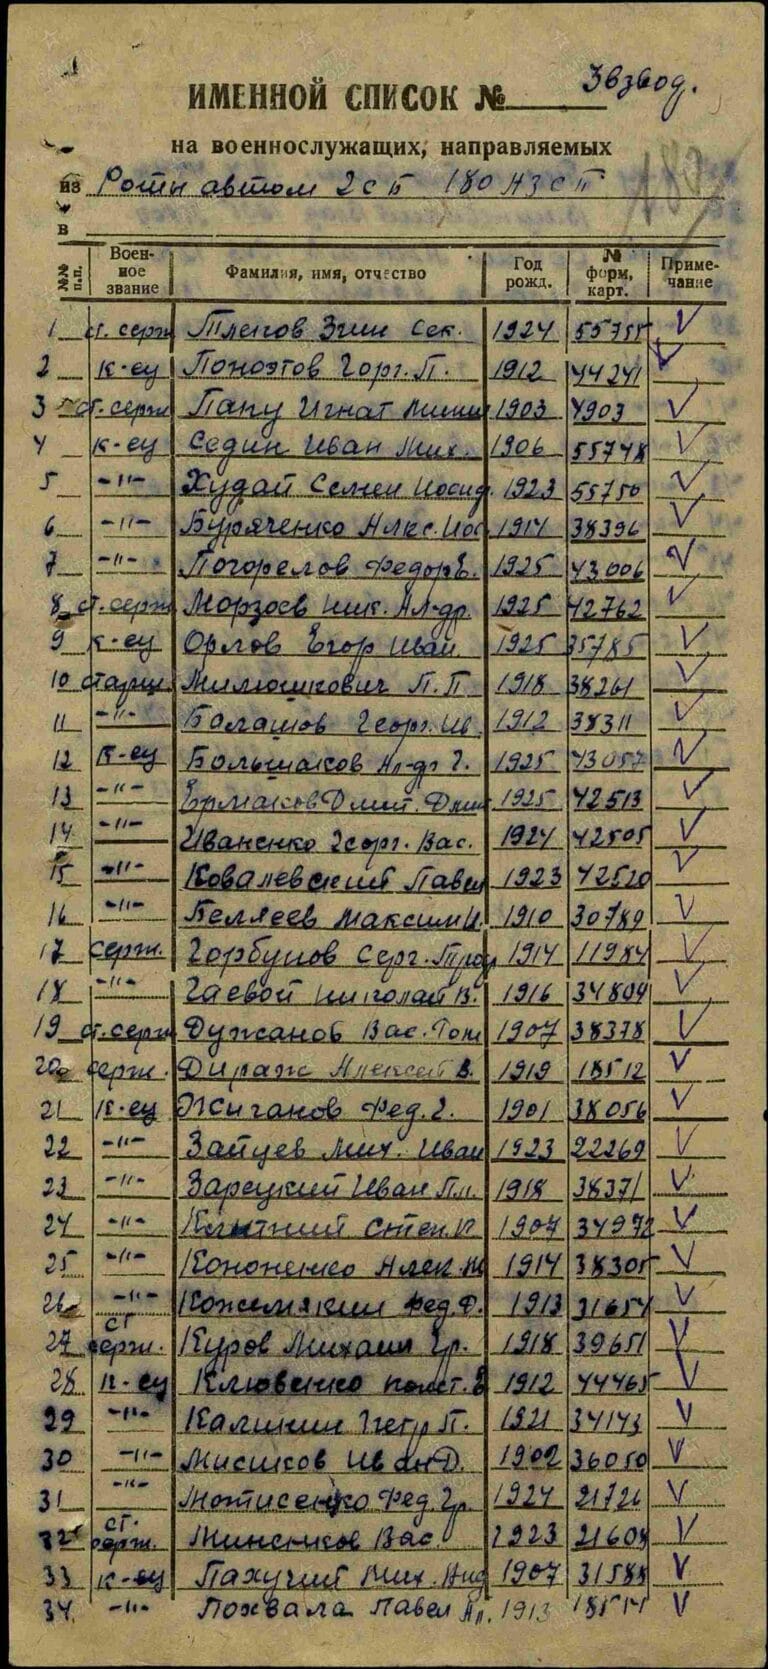 3 взвод.
ИМЕННОЙ СПИСОК №
на военнослужащих, направляемых
из Роты автом 2 сб 180 АЗСП
в
№№ п.п. Воен-ное звание Фамилия, имя, отчество Год рожд. № форм, карт. Приме-чание
1 ст. серж Зиин Сек. 1924 55755 V
2 к-ец Горг. П. 1912 44241 V
3 ст. серж Папу Игнат 1903 4903 V
4 к-ец Седин Иван Мих. 1906 55748 V
5 -"- Худай Семен Иосиф 1923 55750 V
6 -"- Буряченко Алкс. Иос 1914 38396 V
7 -"- Погорелов Федор Е. 1925 43006 V
8 ст. серж Ник. Ал-др. 1925 42762 V
9 к-ец Орлов Егор Иван 1925 35785 V
10 старш. Милюшкович П. П 1918 38261 V
11 -"- Балашов Георг. Ив. 1912 38311 V
12 к-ец Большаков Ал-др Г. 1925 43057 V
13 -"- Ермаков Дмит. Дми 1925 42513 V
14 -"- Иваненко Георг. Вас. 1924 42505 V
15 -"- Ковалевский Павел 1923 42520 V
16 -"- Беляев Максим И. 1910 30789 V
17 серж. Горбунов Серг. 1914 11984 V
18 -"- Гаевой Николай В. 1916 34809 V
19 ст. серж Дужанов Вас. 1907 38378 V
20 серж. Алексей В. 1919 18512 V
21 к-ец Жиганов Фед. Г. 1901 38056 V
22 -"- Зайцев Мих. Иван 1923 22269 V
23 -"- Зарецкий Иван Пл. 1918 38371 V
24 -"- Степ. И 1907 34972 V
25 -"- Кононенко Алек. 1914 38305 V
26 -"- Кожемякин Фед. Ф. 1913 31654 V
27 ст серж. Куров Михаил Гр. 1918 39651 V
28 к-ец Клювенко Конст. 1912 44465 V
29 -"- Калинин Петр П. 1921 34143 V
30 -"- Иван Д. 1902 36050 V
31 -"- Фед. Гр. 1924 21726 V
32 ст. серж. Вас. 1923 21608 V
33 к-ец Пахучий Мих. Анд 1907 31588 V
34 -"- Похвала Павел Ал. 1913 V